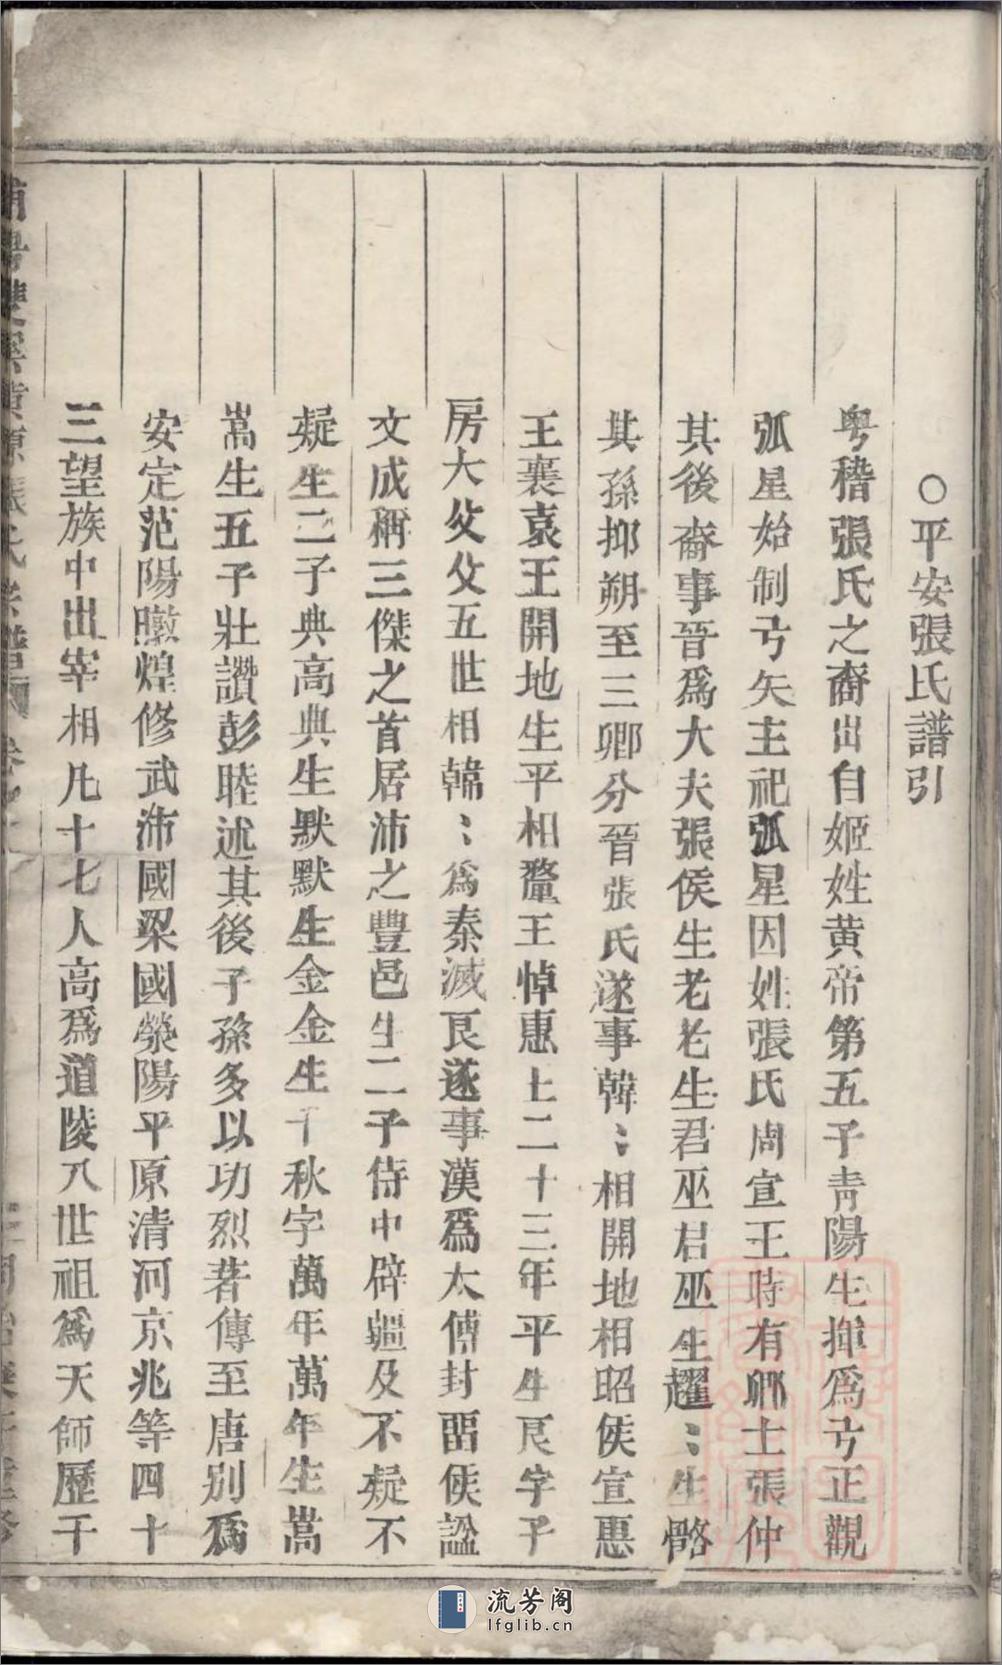 ○平安張氏譜引
粤稽張氏之裔出自姬姓黄帝第五子青陽生揮爲弓正觀
弧星始制弓矢主祀弧星因姓張氏周宣王時有卿士張仲
其後裔事晉爲大夫張侯生老老生君巫君巫生趯〻生骼
其孫抑朔至三卿分晉張氏遂事韓〻相開地相昭侯宣惠
王襄哀王開地生平相釐王悼惠王二十三年平生良字子
房大父父五世相韓〻爲秦滅良遂事漢爲太傅封畱侯諡
文成稱三傑之首居沛之豐邑生二子侍中辟疆及不疑不
疑生二子典高典生默默生金金生千秋字萬年萬年生嵩
嵩生五子壯讚彭睦述其後子孫多以功烈著傳至唐别爲
安定范陽燉煌修武沛國梁國滎陽平原清河京兆等四十
三望族中出宰相凡十七人高爲道陵八世祖爲天師歷千
流芳阁
lfglib.cn